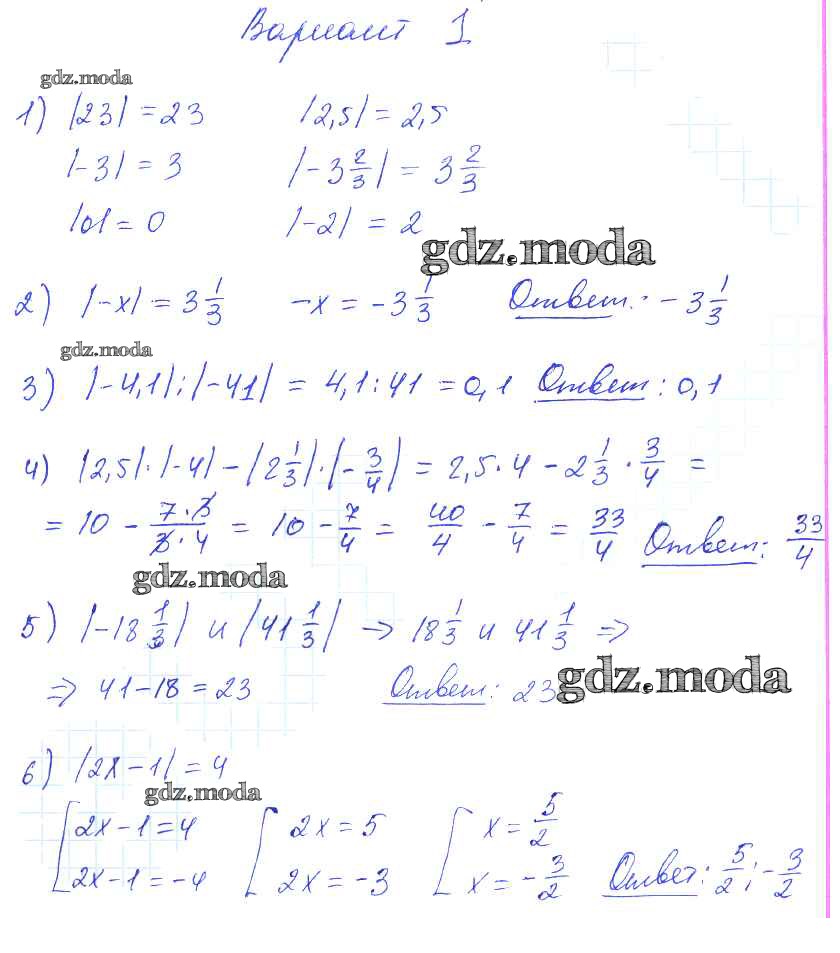 Вариант 1
gdz.moda
1) |23| = 23 |2,5| = 2,5
|-3| = 3 |-3 2/3| = 3 2/3
|0| = 0 |-2| = 2
gdz.moda
2) |-x| = 3 1/3 -x = -3 1/3 Ответ: -3 1/3
gdz.moda
3) |-4,1| : |-41| = 4,1 : 41 = 0,1 Ответ: 0,1
4) |2,5| · |-4| - |2 1/3| · |-3/4| = 2,5 · 4 - 2 1/3 · 3/4 =
= 10 - 7·3/3·4 = 10 - 7/4 = 40/4 - 7/4 = 33/4 Ответ: 33/4
gdz.moda
5) |-18 1/3| и |41 1/3| → 18 1/3 и 41 1/3 ⇒
⇒ 41-18 = 23 Ответ: 23
gdz.moda
6) |2x-1| = 4
gdz.moda
[2x-1=4 [2x=5 [x=5/2
2x-1=-4 2x=-3 x=-3/2 Ответ: 5/2; -3/2